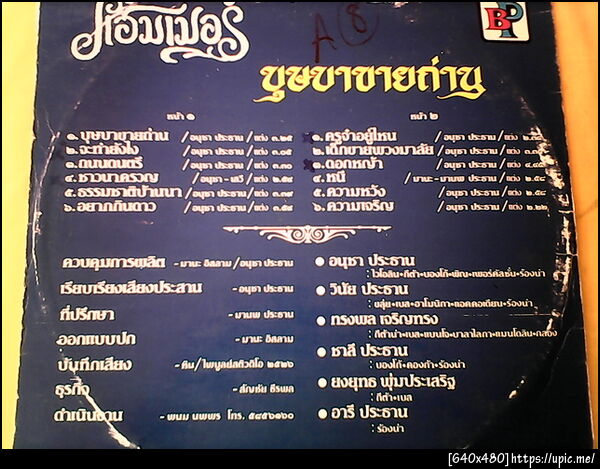 แฮมเมอร์
A 8
BP
บุษบาขายถ่าน
หน้า ๑
๑. บุษบาขายถ่าน /อนุชา ประธาน/แต่ง ๓.๒๕
๒. จะทำยังไง /อนุชา ประธาน/แต่ง ๓.๐๕
๓. ถนนดนตรี /อนุชา ประธาน/แต่ง ๓.๓๐
๔. ชาวนาครวญ /อนุชา - เสรี /แต่ง ๒.๕๕
๕. ธรรมชาติบ้านนา /อนุชา ประธาน/แต่ง ๓.๓๕
๖. อยากกินดาว /อนุชา ประธาน/แต่ง ๓.๕๕
หน้า ๒
๑. ครูจ๋าอยู่ไหน /อนุชา ประธาน/แต่ง ๒.๓๘
๒. เด็กขายพวงมาลัย /อนุชา ประธาน/แต่ง
๓. ดอกหญ้า /อนุชา ประธาน/แต่ง ๔.๔๕
๔. หนี /มานะ-มานพ ประธาน/แต่ง ๒.๕๘
๕. ความหวัง /อนุชา ประธาน/แต่ง ๒.๕๘
๖. ความเจริญ /อนุชา ประธาน/แต่ง ๒.๒๒
ควบคุมการผลิต - มานะ อิสลาม /อนุชา ประธาน
เรียบเรียงเสียงประสาน - อนุชา ประธาน
ที่ปรึกษา - มานพ ประธาน
ออกแบบปก - มานะ อิสลาม
บันทึกเสียง - หิน/ไพบูลย์สติวดิโอ ๒๕๒๖
ธุรกิจ - ลัญชัย ธีรพล
ดำเนินงาน - พนม นพพร โทร. ๕๘๕๖๑๖๐
● อนุชา ประธาน
: ไวโอลิน•กีต้า•บองโก้•พิณ•เพอร์คัสชั่น•ร้องนำ
● วินัย ประธาน
: ขลุ่ย•เบส•ฮาโมนิกา•แอคคอเดียน•ร้องนำ
● ทรงพล เจริญทรง
: กีต้านำ•เบส•แบนโจ•บาลาไลกา•แมนโดลิน•กลอง
● ชาลี ประธาน
: บองโก้•คองก้า•ร้องนำ
● ยงยุทธ พุ่มประเสริฐ
: กีต้า•เบส
● อารี ประธาน
: ร้องนำ
[640x480]https://upic.me/